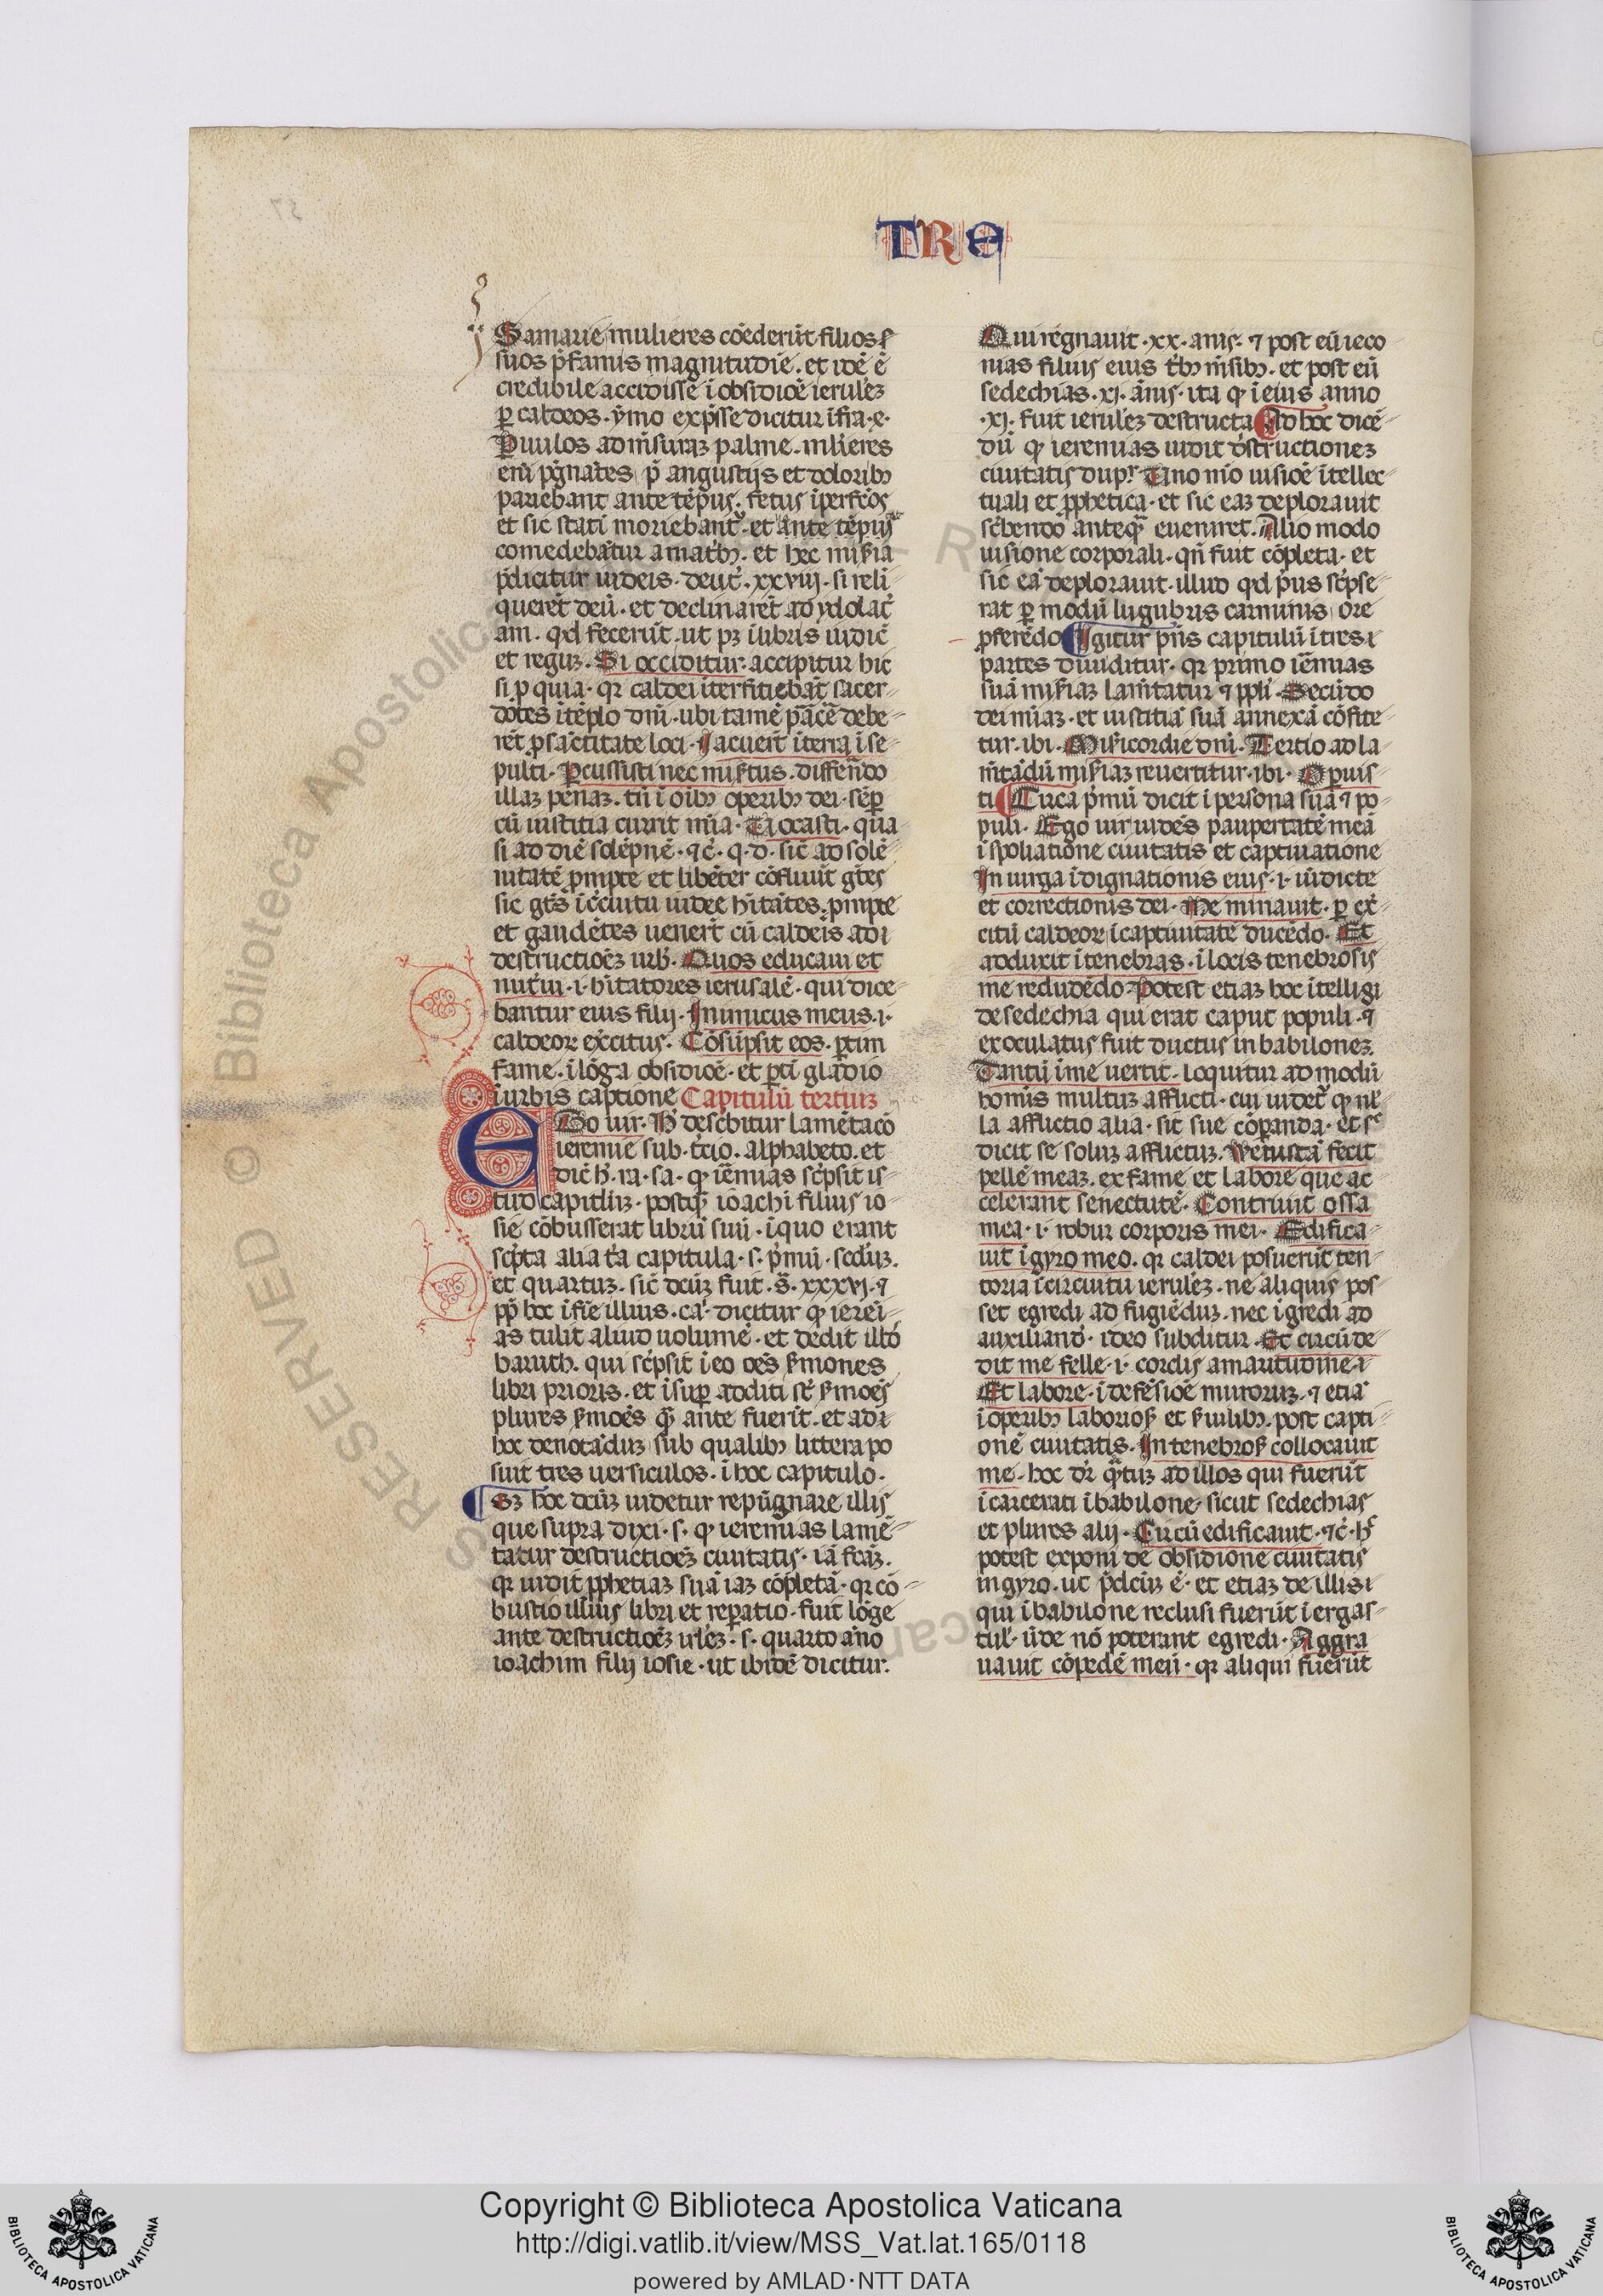 TRE
Samarie mulieres cōederūt filios
suos p̄ famis magnitudīe. et idē ē
credibile accidisse ī obsidiōe ierlēz
ꝑ caldeos. ẏmo exp̄sse dicitur īfra. e.
Puulos ad mēsuraz palme. mlieres
enī p̄gnātes p̄ angustijs et doloribꝫ
pariebant ante tēpus. fetus īperfcōs
et sic statī moriebantᷣ. et ante tēpus
comedebātur a matribꝫ. et hec mis̄ia
p̄dicitur iudeis. deut̄. xxviij. si reli
querēt deū. et declinarēt ad ydolat̄
am. qd fecerūt. ut pꝫ ī libris iudic̄
et reguꝫ. Si occiditur: accipitur hic
si ꝓ quia. qꝛ caldei īterfitiebāt sacer
dotes ī tēplo dnī. ubi tamē pācē debe
rēt ꝓ sāctitate loci. Jacuerūt ī terra ī se
pulti. Ꝑcussisti nec mis̄tus. differēdo
illaꝫ penaꝫ. tn̄ ī oībꝫ operibꝫ dei. sēꝑ
cū iustitia currit mīa. Uocasti. qua
si ad diē solēpnē. ⁊c̄. q. d. sic̄ ad solē
nitatē ꝓmpte et libēter cōfluūt gētes
sic gētes ī c̄cuitu iudee hītātes. ꝓmpte
et gaudētes uenerūt cū caldeis ad
destructiōeꝫ urbꝭ. Quos educaui et
nutriui. i. hītatores ierusalē. qui dice
bantur eius filij. Jnimicus meus. i.
caldeoꝝ exc̄itus. Cōsūpsit eos. ꝑtim
fame. ī lōga obsidiōe. et ꝑtī gladio
ī urbis captione Capitulū tertiuꝫ
EGo uir. Hic desc̄bitur lamētacō
ieremie sub. tercio. alphabeto. et
dic̄ h̄. ra. sa. qꝫ iēmias sc̄psit is
tud capitlm. postqꝫ ioachī filius io
sie cōbusserat librū suū. ī quo erant
sc̄pta alia tria capitula. s. p̄mū. sec̄duꝫ.
et quartuꝫ. sic̄ dc̄m fuit. s̄. xxxvj. ⁊
ꝓp̄ hoc ī fīe illius. ca. dicitur qꝫ ieremi
as tulit aliud uolumē. et dedit illud
baruch. qui sc̄psit ī eo oēs sermones
libri prioris. et īsuꝑ additi sūt sermōes
plures sermōes qꝫ ante fuerīt. et ad
hoc denotāduꝫ sub qualibꝫ littera po
suit tres uersiculos. ī hoc capitulo.
Sꝫ hoc dc̄m uidetur repūgnare illis
que supra dixi. s. qꝫ ieremias lamē
tatur destructiōeꝫ ciuitatis. iā fcāꝫ.
qꝛ uidit ꝓphetiaꝫ suā iaꝫ cōpletā. qꝛ cō
bustio illius libri et reꝑatio. fuit lōge
ante destructiōeꝫ irlēꝫ. s. quarto āno
ioachim filij iosie. ut ibidē dicitur.
Qui regnauit. xx. ānis. ⁊ post eū ieco
nias filius eius tribꝫ mēsibꝫ. et post eū
sedechias. xj. ānis. ita qꝫ ī eius anno
.xj. fuit ierlēꝫ destructa Ad hoc dicē
dū qꝫ ieremias uidit destructionez
ciuitatis dupꝛ. Uno mō uisiōe ītellec
tuali et ꝓphetica. et sic eaꝫ deplorauit
sc̄bendo anteqꝫ eueniret. Alio modo
uisione corporali. qn̄ fuit cōpleta. et
sic eā deplorauit. illud qd p̄us sc̄pse
rat ꝑ modū lugubris carminis ore
ꝓferēdo Igitur p̄ns capitulū ī tres
partes diuiditur. qꝛ primo iēmias
suā mis̄iaꝫ lamētatur ⁊ ppli. Secūdo
dei mīaꝫ. et iustitiā suā annexā cōfite
tur. ibi. Misericordie dnī. Tertio ad la
mētādū mis̄iaꝫ reuertitur. ibi. Operuis
ti Circa p̄mū dicit ī persona sua ⁊ po
puli. Ego uir uidēs paupertatē meā
ī spoliatione ciuitatis et captiuatione
In uirga īdignationis eius. i. uīdicte
et correctionis dei. Me minauit. ꝑ ex̄
citū caldeoꝝ ī captiuitatē ducēdo. Et
adduxit ī tenebras. ī locis tenebrosis
me recludēdo. Potest etiaꝫ hoc ītelligi
de sedechia qui erat caput populi. ⁊
exoculatus fuit ductus in babilonez.
Tantū ī me uertit. loquitur ad modū
homīs multuꝫ afflicti. cui uidetᷣ qꝫ nul
la afflictio alia. sit sue cōꝑanda. et sic
dicit se soluꝫ afflictuꝫ. Uetustā fecit
pellē meaꝫ. ex fame et labore que ac
celerant senectutē. Contriuit ossa
mea. i. robur corporis mei. Edifica
uit ī gyro meo. qꝛ caldei posuerūt ten
toria ī circuitu ierlēꝫ. ne aliquis pos
set egredi ad fugiēduꝫ. nec īgredi ad
auxiliandū. ideo subditur. Et circūde
dit me felle. i. cordis amaritudine
Et labore. ī defēsiōe muroruꝫ. ⁊ etiā
ī operibꝫ laboriosꝭ et seruilibꝫ. post capti
onē ciuitatis. In tenebrosꝭ collocauit
me. hoc dꝛ qꝫtuꝫ ad illos qui fuerūt
ī carcerati ī babilone. sicut sedechias
et plures alij. Circū edificauit. ⁊c̄. hoc
potest exponi de obsidione ciuitatis
in gyro. ut p̄dcm̄ ē. et etiaꝫ de illis
qui ī babilone reclusi fuerūt ī ergas
tulꝭ. ūde nō poterant egredi. Aggra
uauit cōpedē meū. qꝛ aliqui fuerūt
Copyright © Biblioteca Apostolica Vaticana
http://digi.vatlib.it/view/MSS_Vat.lat.165/0118
powered by AMLAD·NTT DATA
BIBLIOTECA APOSTOLICA VATICANA
BIBLIOTECA APOSTOLICA VATICANA